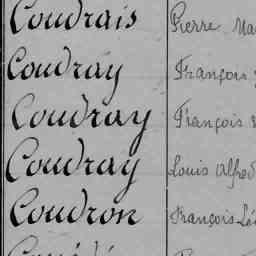 Coudrais Pierre
Coudray François
Coudray François
Coudray Louis Alfred
Coudron François